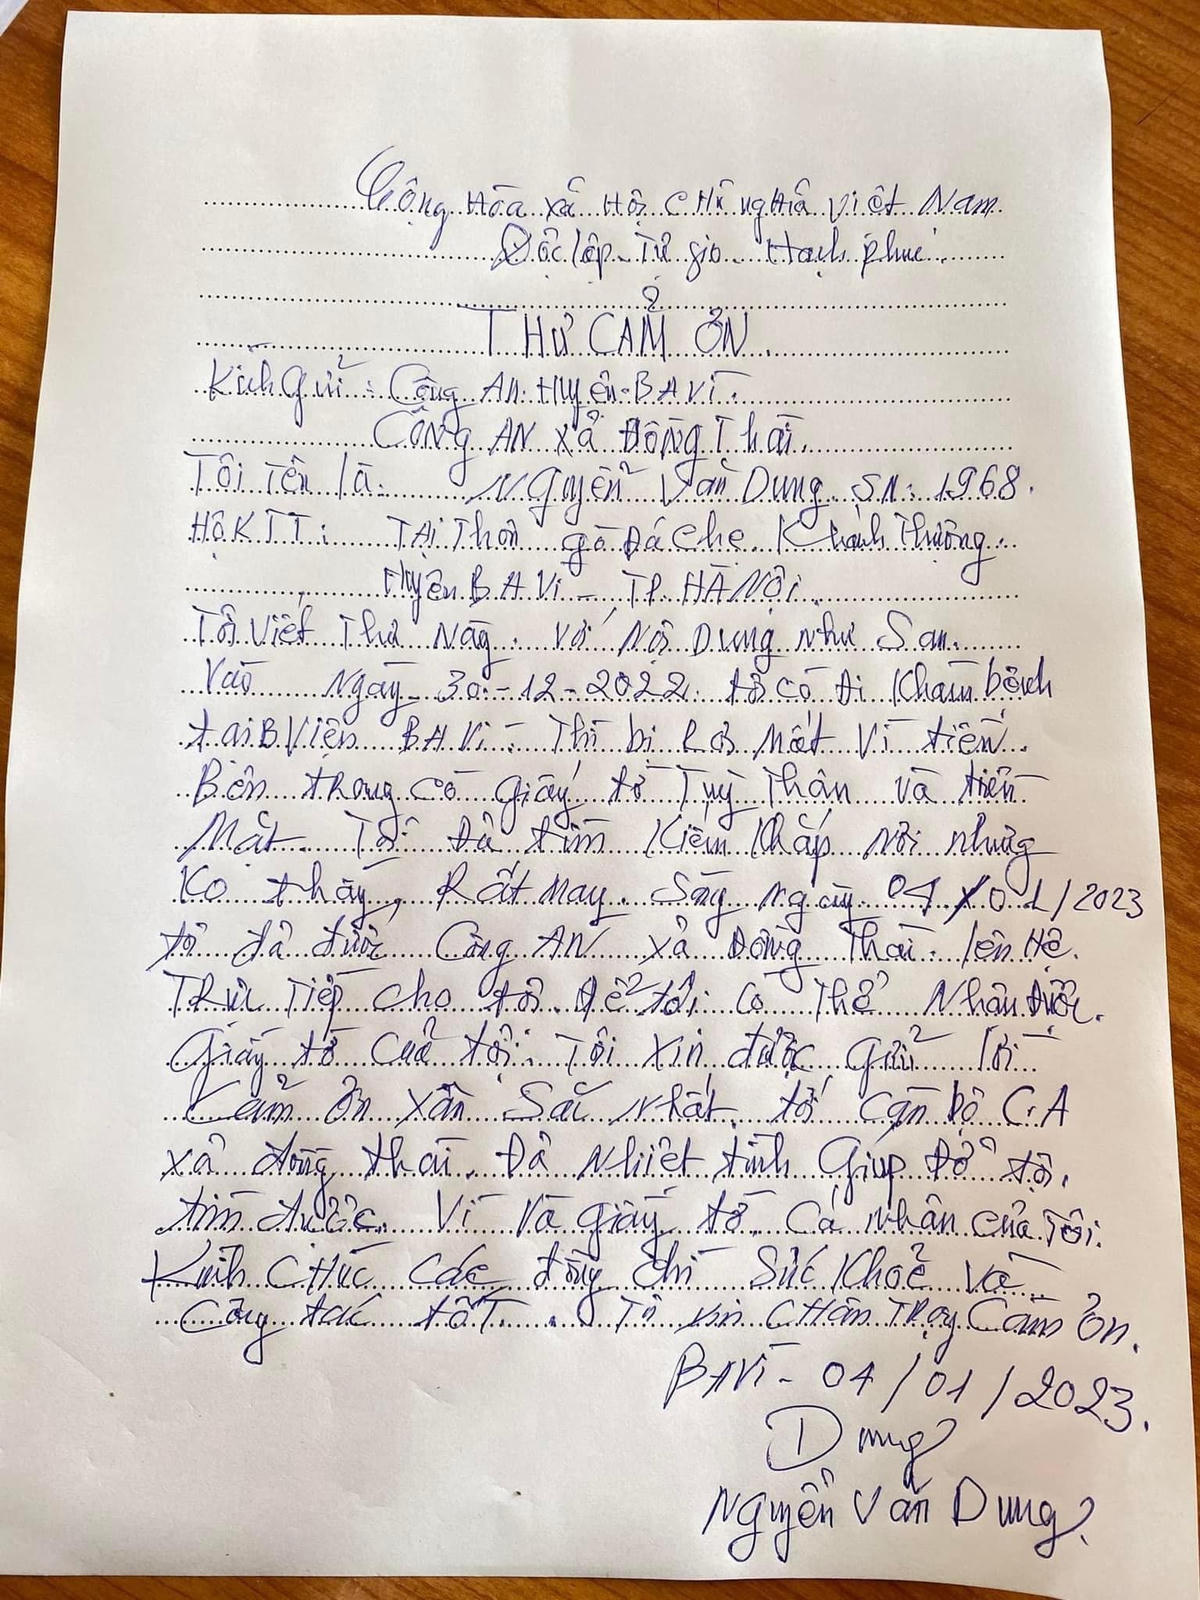 Cộng Hòa xã Hội CHủ nghĩa Việt Nam
Độc lập Tự do Hạnh phúc
THƯ CẢM ƠN
Kính Gửi: Công AN Huyện BA Vì.
CÔNG AN xã Đông Thái.
Tôi Tên là: Nguyễn Văn Dung SN: 1968.
Hộ KTT: TẠi Thôn gò Đá Chẹ Khánh Thượng
Huyện BA Vì - TP HÀ NỘi
Tôi Viết Thư Này. Với Nội Dung như Sau.
Vào Ngày 30-12-2022 tôi có đi Khám bệnh
tại B Viện BA Vì. Thì bị Rơi Mất Ví tiền.
Bên trong có Giấy tờ Tuỳ Thân và tiền
Mặt. Tôi Đã tìm Kiếm Khắp nơi nhưng
Ko thấy, Rất May Sáng ngày 04/01/2023
tôi đã được Công AN xã Đông Thái. lên Hệ.
Trực Tiếp cho tôi để tôi có Thể Nhận được.
Giấy tờ của tôi. Tôi xin được Gửi lời
Cảm ơn xân Sắc nhất tới Cán bộ C.A
xã đông thái. Đã Nhiệt tình Giúp Đỡ tôi.
tìm được Ví Và Giấy tờ Cá nhân của Tôi.
Kính CHúc các đồng chí Sức Khoẻ và
Công tác tốt. Tôi xin CHân Thọy Cảm ơn.
BA Vì - 04/01/2023.
Dung
Nguyễn Văn Dung